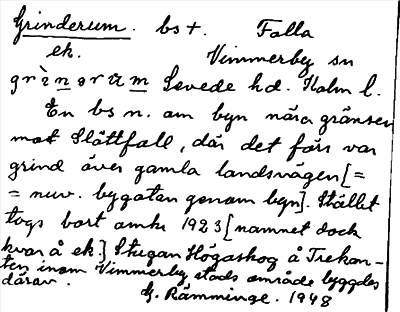 Grinderum. bst. Falla
ek. Vimmerby sn
grìnərūm Sevede hd. Kalm l.
En bs n. om byn nära gränsen
mot Slättfall, där det förr var
grind över gamla landsvägen [=
= nuv. bygatan genom byn]. Stället
togs bort omkr 1923 [namnet dock
kvar å ek.] Stugan Högaskog å Trekan-
ten inom Vimmerby stads område byggdes
därav.
G. Rämminge. 1948